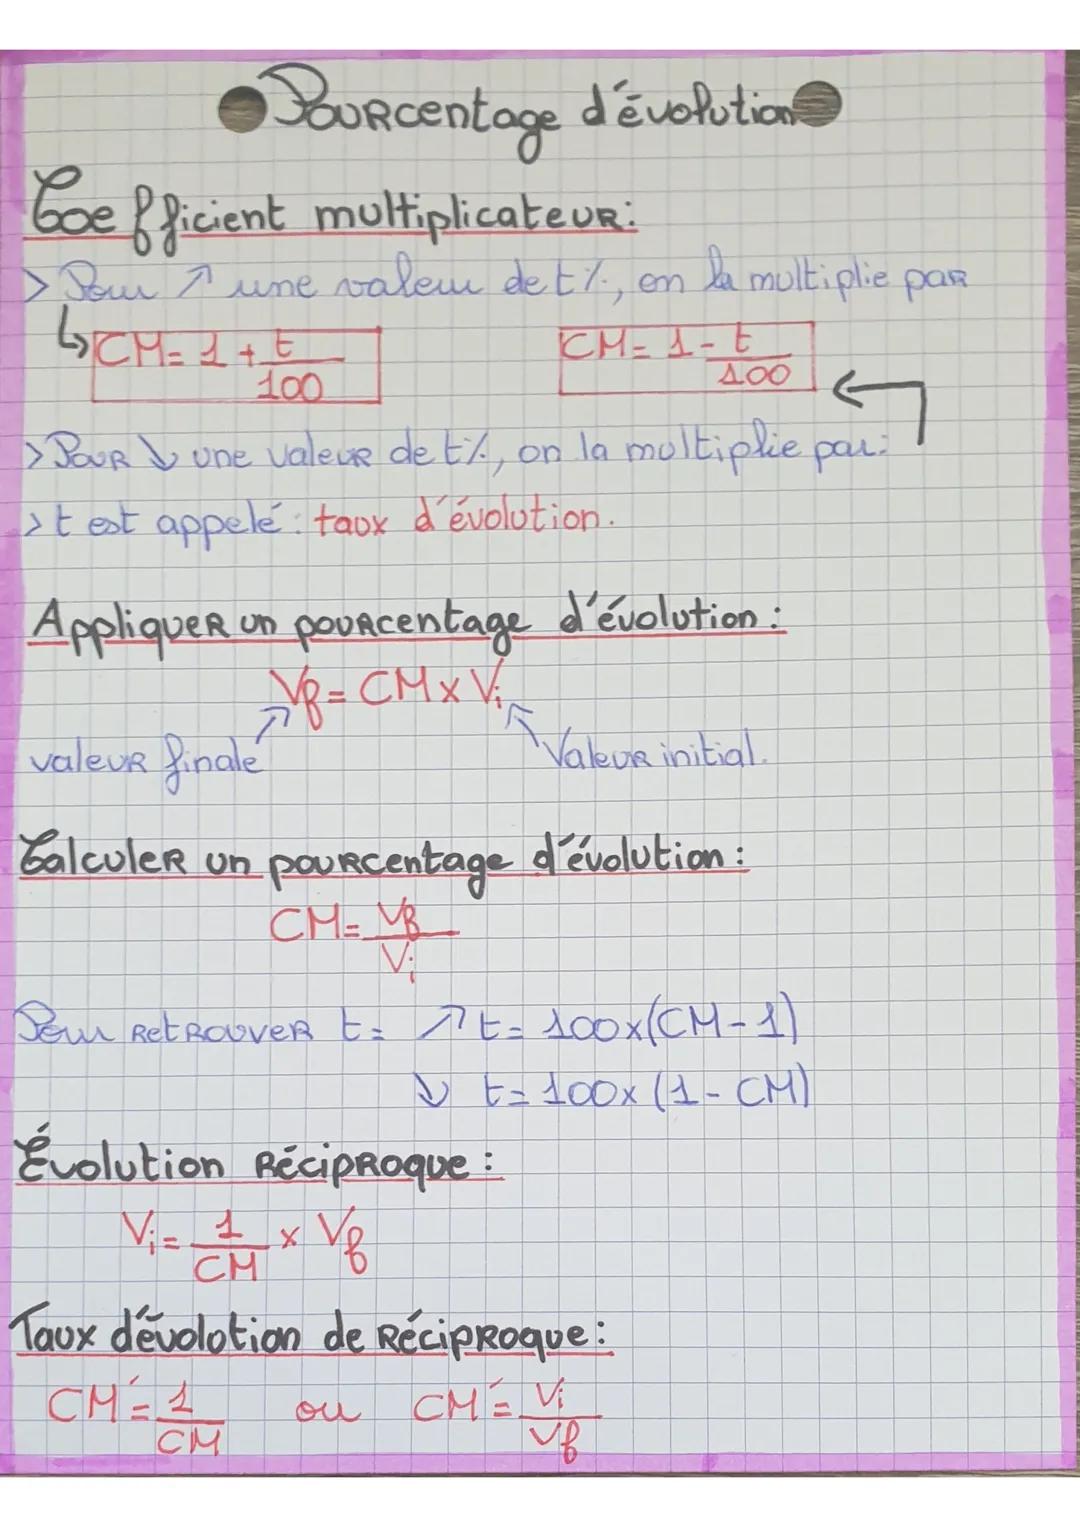 Pourcentage d'évolution
Coefficient multiplicateur:
> Pour ↗ une valeur de t%, on la multiplie par
↳ CM = 1 + t/100
CM = 1 - t/100
> Pour ↘ une valeur de t%, on la multiplie par:
> t est appelé : taux d'évolution.
Appliquer un pourcentage d'évolution :
Vf = CM x Vi
valeur finale
Valeur initial.
Calculer un pourcentage d'évolution :
CM = Vf/Vi
Pour retrouver t = ↗ t = 100x(CM-1)
↘ t = 100x (1 - CM)
Évolution Réciproque :
Vi = 1/CM x Vf
Taux d'évolution de Réciproque :
CM' = 1/CM ou CM' = Vi/Vf